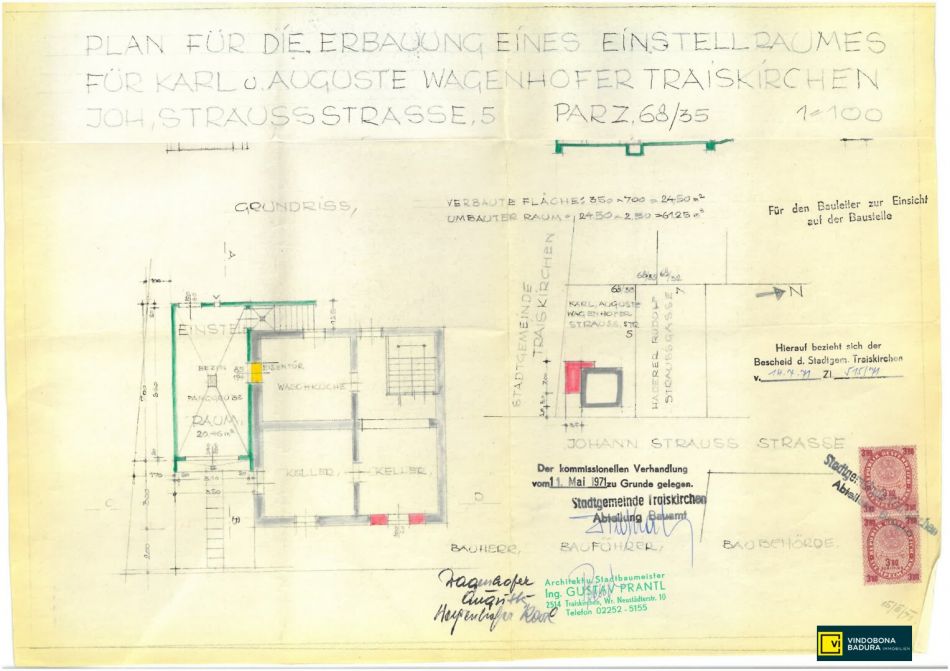 PLAN FÜR DIE ERBAUUNG EINES EINSTELLRAUMES
FÜR KARL u. AUGUSTE WAGENHOFER TRAISKIRCHEN
JOH, STRAUSSSTRASSE, 5 PARZ, 68/35 1=100
GRUNDRISS,
VERBAUTE FLÄCHE: 350 × 700 = 24,50 m²
UMBAUTER RAUM =, 24,50 × 2,50 = 61,25 m³
Für den Bauleiter zur Einsicht
auf der Baustelle
STADTGEMEINDE
TRAISKIRCHEN
68/35
KARL, AUGUSTE
WAGENHOFER
STRAUSS, STR
5
HADERER RUDOLF
STRAUSSGASSE 7
N
A
EINSTELL
RAUM,
EISENTÜR
WASCHKÜCHE
BENZIN
KELLER,
KELLER,
3.50
C
D
B
Hierauf bezieht sich der
Bescheid d. Stadtgem. Traiskirchen
v. 14.7.71 Zl 515/71
JOHANN STRAUSS STRASSE
Der kommissionellen Verhandlung
vom 11. Mai 1971 zu Grunde gelegen.
Stadtgemeinde Traiskirchen
Abteilung Bauamt
BAUHERR, BAUFÜHRER, BAUBEHÖRDE.
Wagenhofer
Auguste
Architekt u. Stadtbaumeister
Ing. GUSTAV PRANTL
2514 Traiskirchen, Wr. Neustädterstr. 10
Telefon 02252 - 5155
VINDOBONA
BADURA IMMOBILIEN